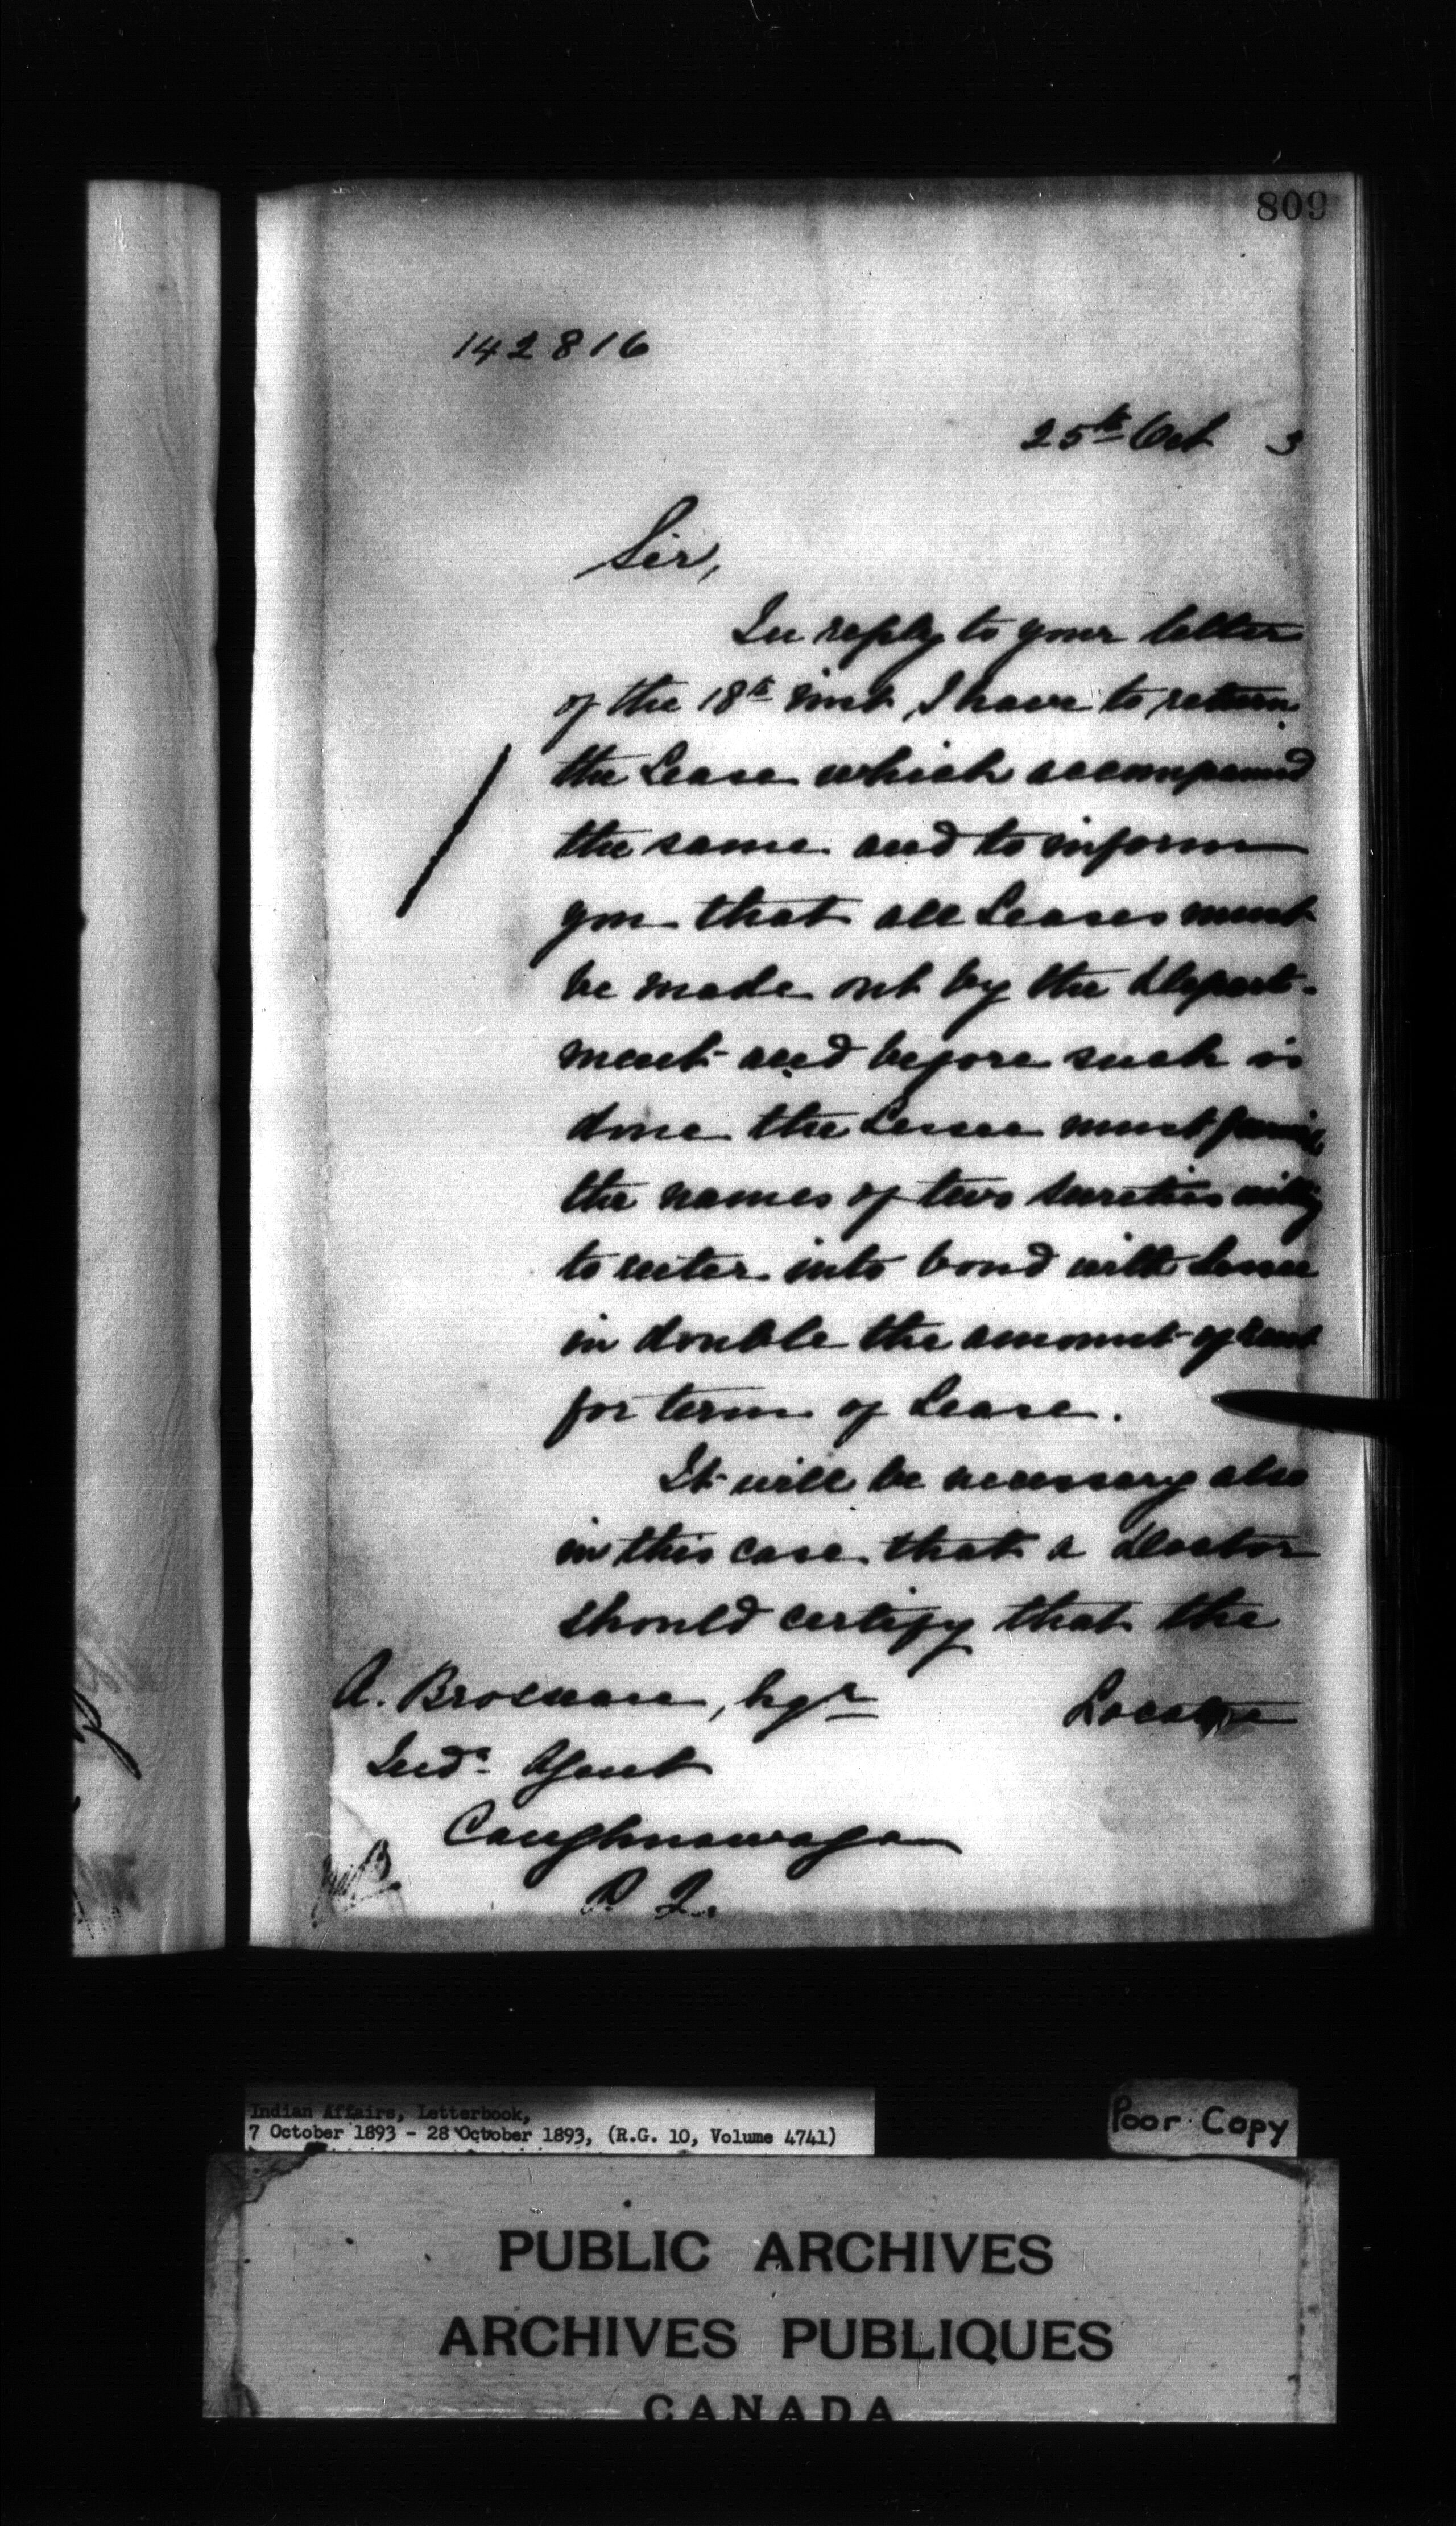 809
142816
25th Oct 3
Sir,
In reply to your letter
of the 18th inst, I have to return
the Lease which accompanied
the same and to inform
you that all Leases must
be made out by the Depart-
ment and before such is
done the Lessee must furnish
the names of two sureties willg
to enter into bond with Lessee
in double the amount of rent
for term of Lease.
It will be necessary also
in this case that a Doctor
should certify that the
Locatee
A. Brosseau, Esqr
Indn Agent
Caughnawaga
P. Q.
Indian Affairs, Letterbook,
7 October 1893 - 28 October 1893, (R.G. 10, Volume 4741)
Poor Copy
PUBLIC ARCHIVES
ARCHIVES PUBLIQUES
CANADA